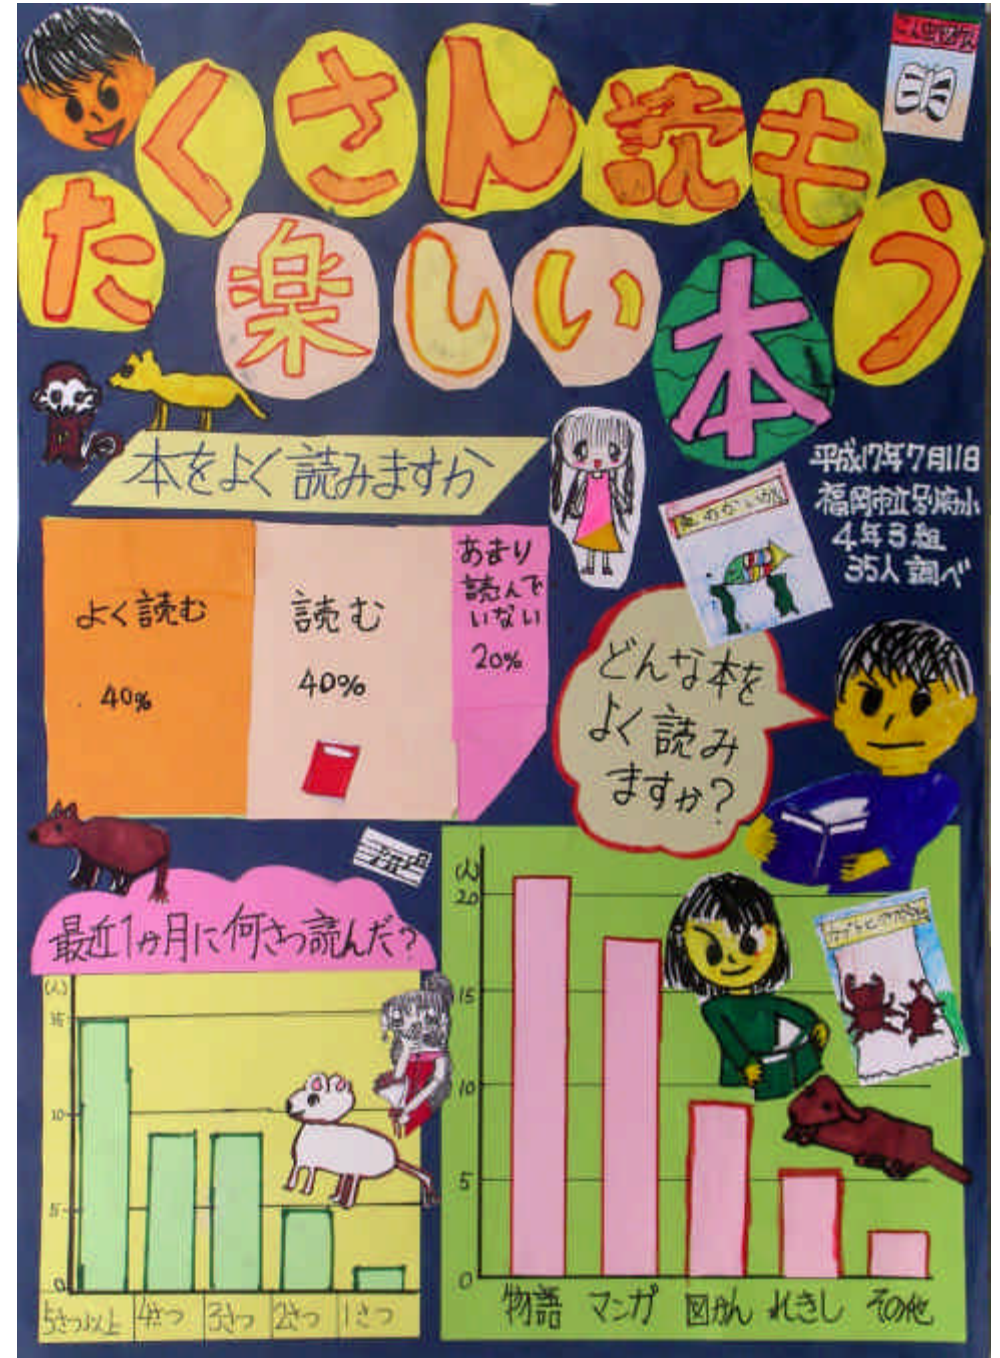 たくさん読もう
楽しい本
平成17年7月11日
福岡市立別府小
4年3組
35人調べ
本をよく読みますか
よく読む
40%
読む
40%
あまり
読んで
いない
20%
どんな本を
よく読み
ますか?
最近1か月に何さつ読んだ?
(人)
15
10
5
0
5さつ以上 4さつ 3さつ 2さつ 1さつ
(人)
20
15
10
5
0
物語 マンガ 図かん れきし その他